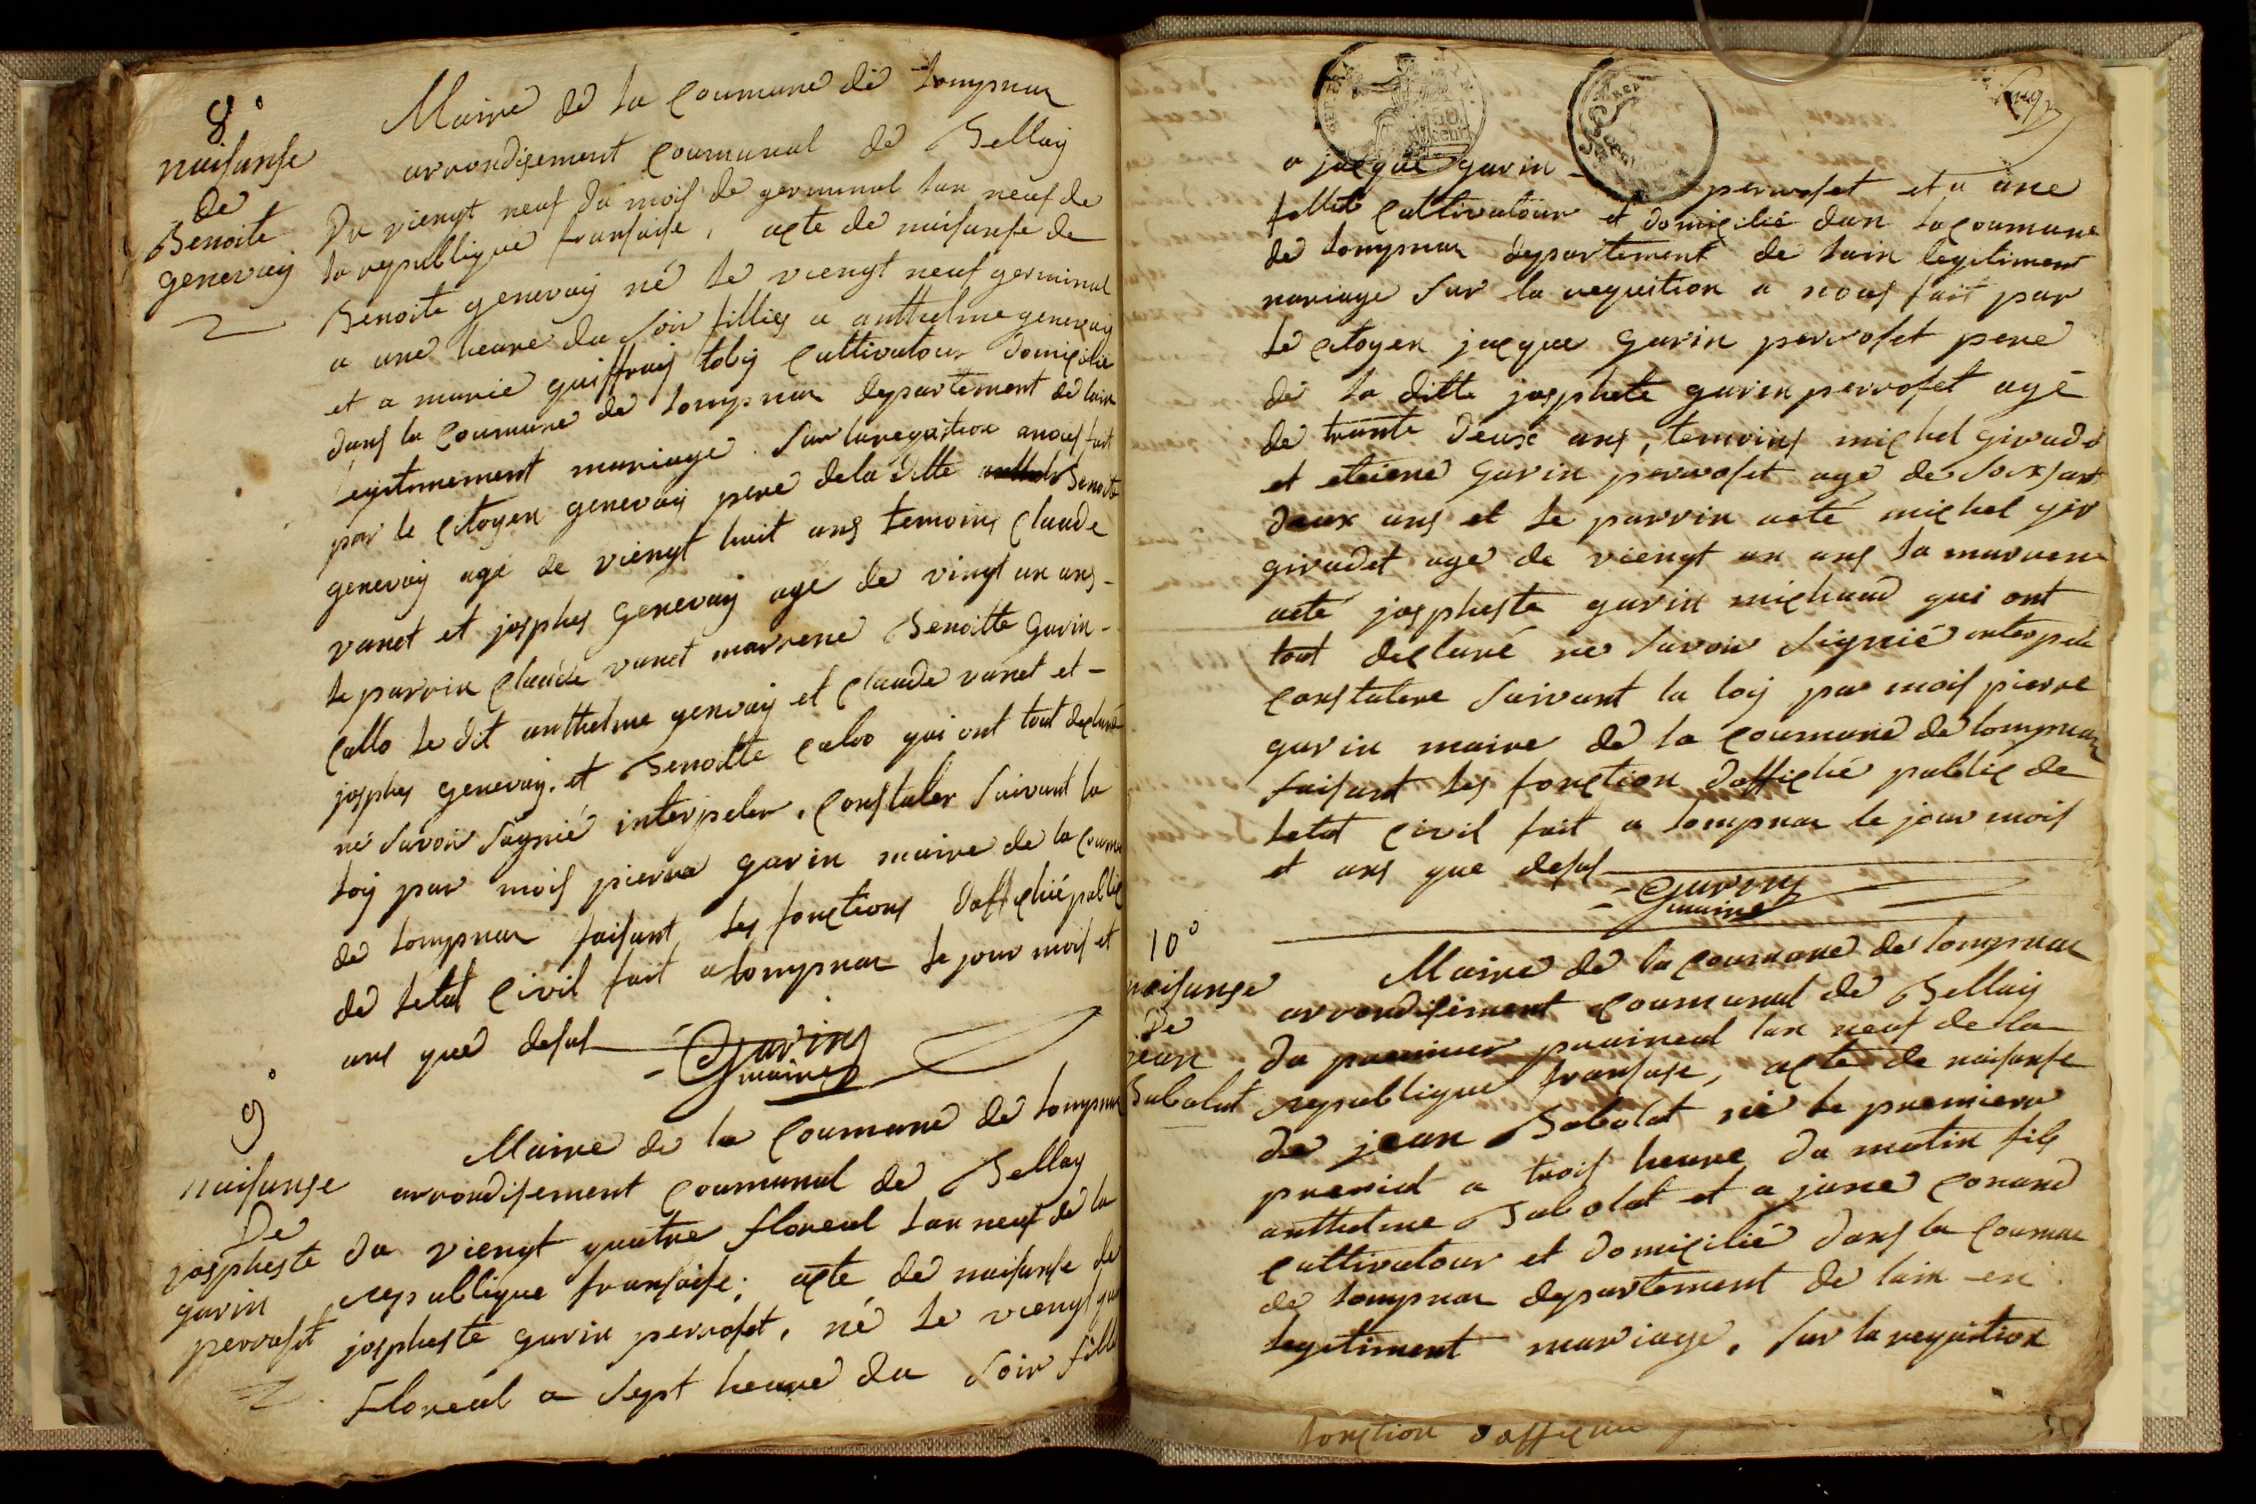 8°
naisanse
de
Benoite
genevay
Maire de la Coumune de Lompnar
arrondisement Coumunal de Bellay
Du viengt neuf du mois de germinal lan neuf de
la republique fransaise, acte de naisanse de
Benoite genevay né le viengt neuf germinal
a une heure du soir filliez a anthelme genevay
et a marie guiffray toly Cultivatour domicilié
dans la Coumune de Lompnar departement de lain
legitimement mariage. sur la requistion a nous fait
par le Citoyen genevay pere de la ditte Benoite
genevay agé de viengt huit ans temoins Claude
vanet et josphes genevay age de vingt un ans -
le parrin Claude vanet marrene Benoitte gavin -
Callo le dit anthelme genvay et Claude vanet et -
josphes genevay. et Benoitte calvo qui ont tout declaré
ne savoir signié interpeler. Constater suivant la
loy par mois pierre gavin maire de la Coumu
de Lompnar faisant les fonctions daffichié public
de letat Civil fait a lompnar le jour mois et
ans que desus
Gavin
maire
9°
naisanse
De
jospheste
gavin
perroset
Maire de la Coumune de Lompnar
arrondisement Coumunal de Bellay
du viengt quatre floreal lan neuf de la
republique fransaise; acte de naisanse de
jospheste gavin perroset, né le viengt qua
Floreal a sept heure du soir fille
a jacque gavin - perroset et a une
fillet Cultivatour et domicilié dan la coumune
de Lompnar departement de lain legitiment
mariage sur la requition a nous fait par
le Citoyen jacque gavin perroset pere
de la ditte josphete gavin perroset agé
de trante deux ans, temoins michel giradet
et etiene gavin perroset age de soixsant
deux ans et le parrin aeté michel gir
giradet age de viengt un ans la marrene
aeté jospheste gavin michaud qui ont
tout declaré ne savoir signié interpele
constatere suivant la loy par mois pierre
gavin maire de la Coumune de lompnar
faisant les fonction daffichié public de
letat Civil fait a lompnar le jour mois
et ans que desus
Gavin
maire
10°
naisanse
De
jean
Babolat
Maire de la Coumune de lompnar
arrondisement Coumunal de Bellay
du premier prairieal lan neuf de la
republique fransaise, acte de naisanse
de jean Babolat né le premiere
prerial a trois heure du matin fils
anthelme Babolat et a jane Conand
Cultivatour et domicilié dans la Coumune
de Lompnar departement de lain en
legitiment mariage, sur la requistion
fonction daffichie